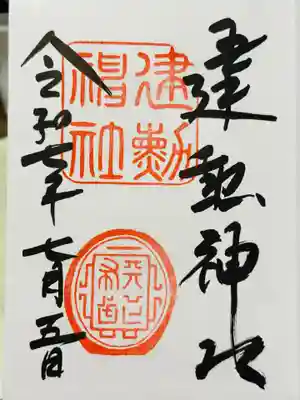 建勲神社
建勲
神社
令和七年 七月五日